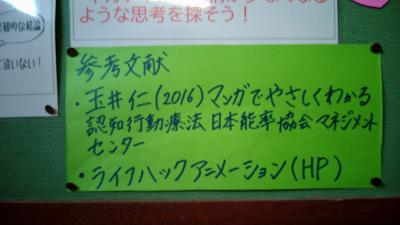 ような思考を探そう!
参考文献
・玉井仁(2016)マンガでやさしくわかる
認知行動療法 日本能率協会マネジメント
センター
・ライフハックアニメーション(HP)